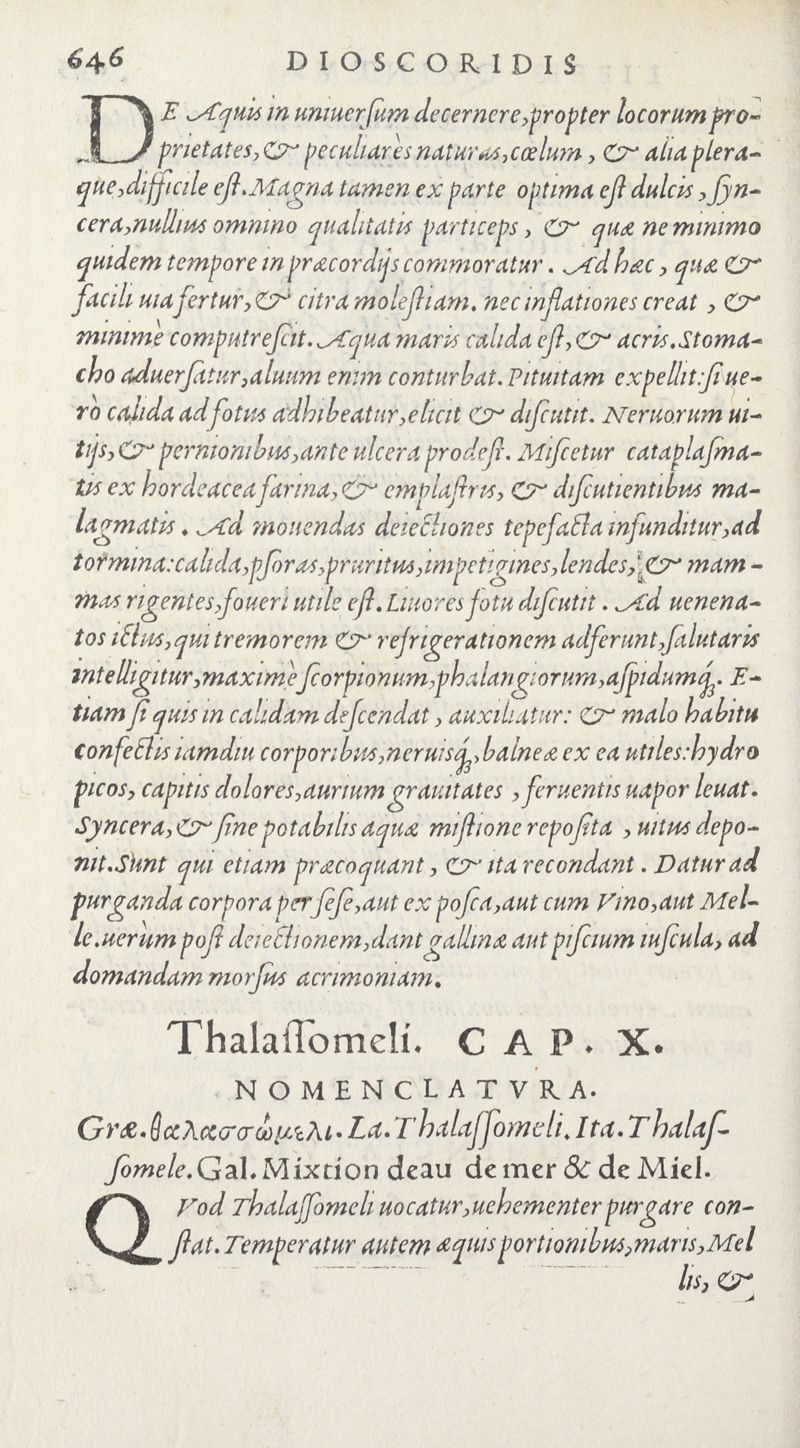 646 DIOSCORIDIS
DE Aquis in uniuersum decernere,propter locorum pro-
prietates,& peculiares naturas,cœlum , & alia plera-
que,difficile est.Magna tamen ex parte optima est dulcis ,syn-
cera,nullius omnino qualitatis particeps , & quæ ne minimo
quidem tempore in præcordijs commoratur . Ad hæc , quæ &
facili uia fertur,& citra molestiam. nec inflationes creat , &
minimè computrescit. Aqua maris calida est,& acris.Stoma-
cho aduersatur,aluum enim conturbat.Pituitam expellit:si ue-
rò calida ad fotus adhibeatur,elicit & discutit. Neruorum ui-
tijs,& pernionibus,ante ulcera prodest. Miscetur cataplasma-
tis ex hordeacea farina,& emplastris, & discutientibus ma-
lagmatis . Ad mouendas deiectiones tepefacta infunditur,ad
tormina:calida,psoras,pruritus,impetigines,lendes,& mam -
mas rigentes,foueri utile est.Liuores fotu discutit . Ad uenena-
tos ictus,qui tremorem & refrigerationem adferunt,salutaris
intelligitur,maximè scorpionum,phalangiorum,aspidumq́;. E-
tiam si quis in calidam descendat , auxiliatur: & malo habitu
confectis iamdiu corporibus,neruisq́;,balneæ ex ea utiles:hydro
picos, capitis dolores,aurium grauitates ,feruentis uapor leuat.
Syncera,& sine potabilis aquæ mistione reposita , uitus depo-
nit.Sunt qui etiam præcoquant , & ita recondant . Datur ad
purganda corpora per sese,aut ex posca,aut cum Vino,aut Mel-
le.uerùm post deiectionem,dant gallinæ aut piscium iuscula, ad
domandam morsus acrimoniam.
Thalassomeli. CAP. X.
NOMENCLATVRA.
Græ.θαλασσώμελι. La.Thalassomeli.Ita.Thalas-
somele.Gal.Mixtion deau de mer & de Miel.
QVod Thalassomeli uocatur,uehementer purgare con-
stat.Temperatur autem æquis portionibus,maris,Mel
lis, &